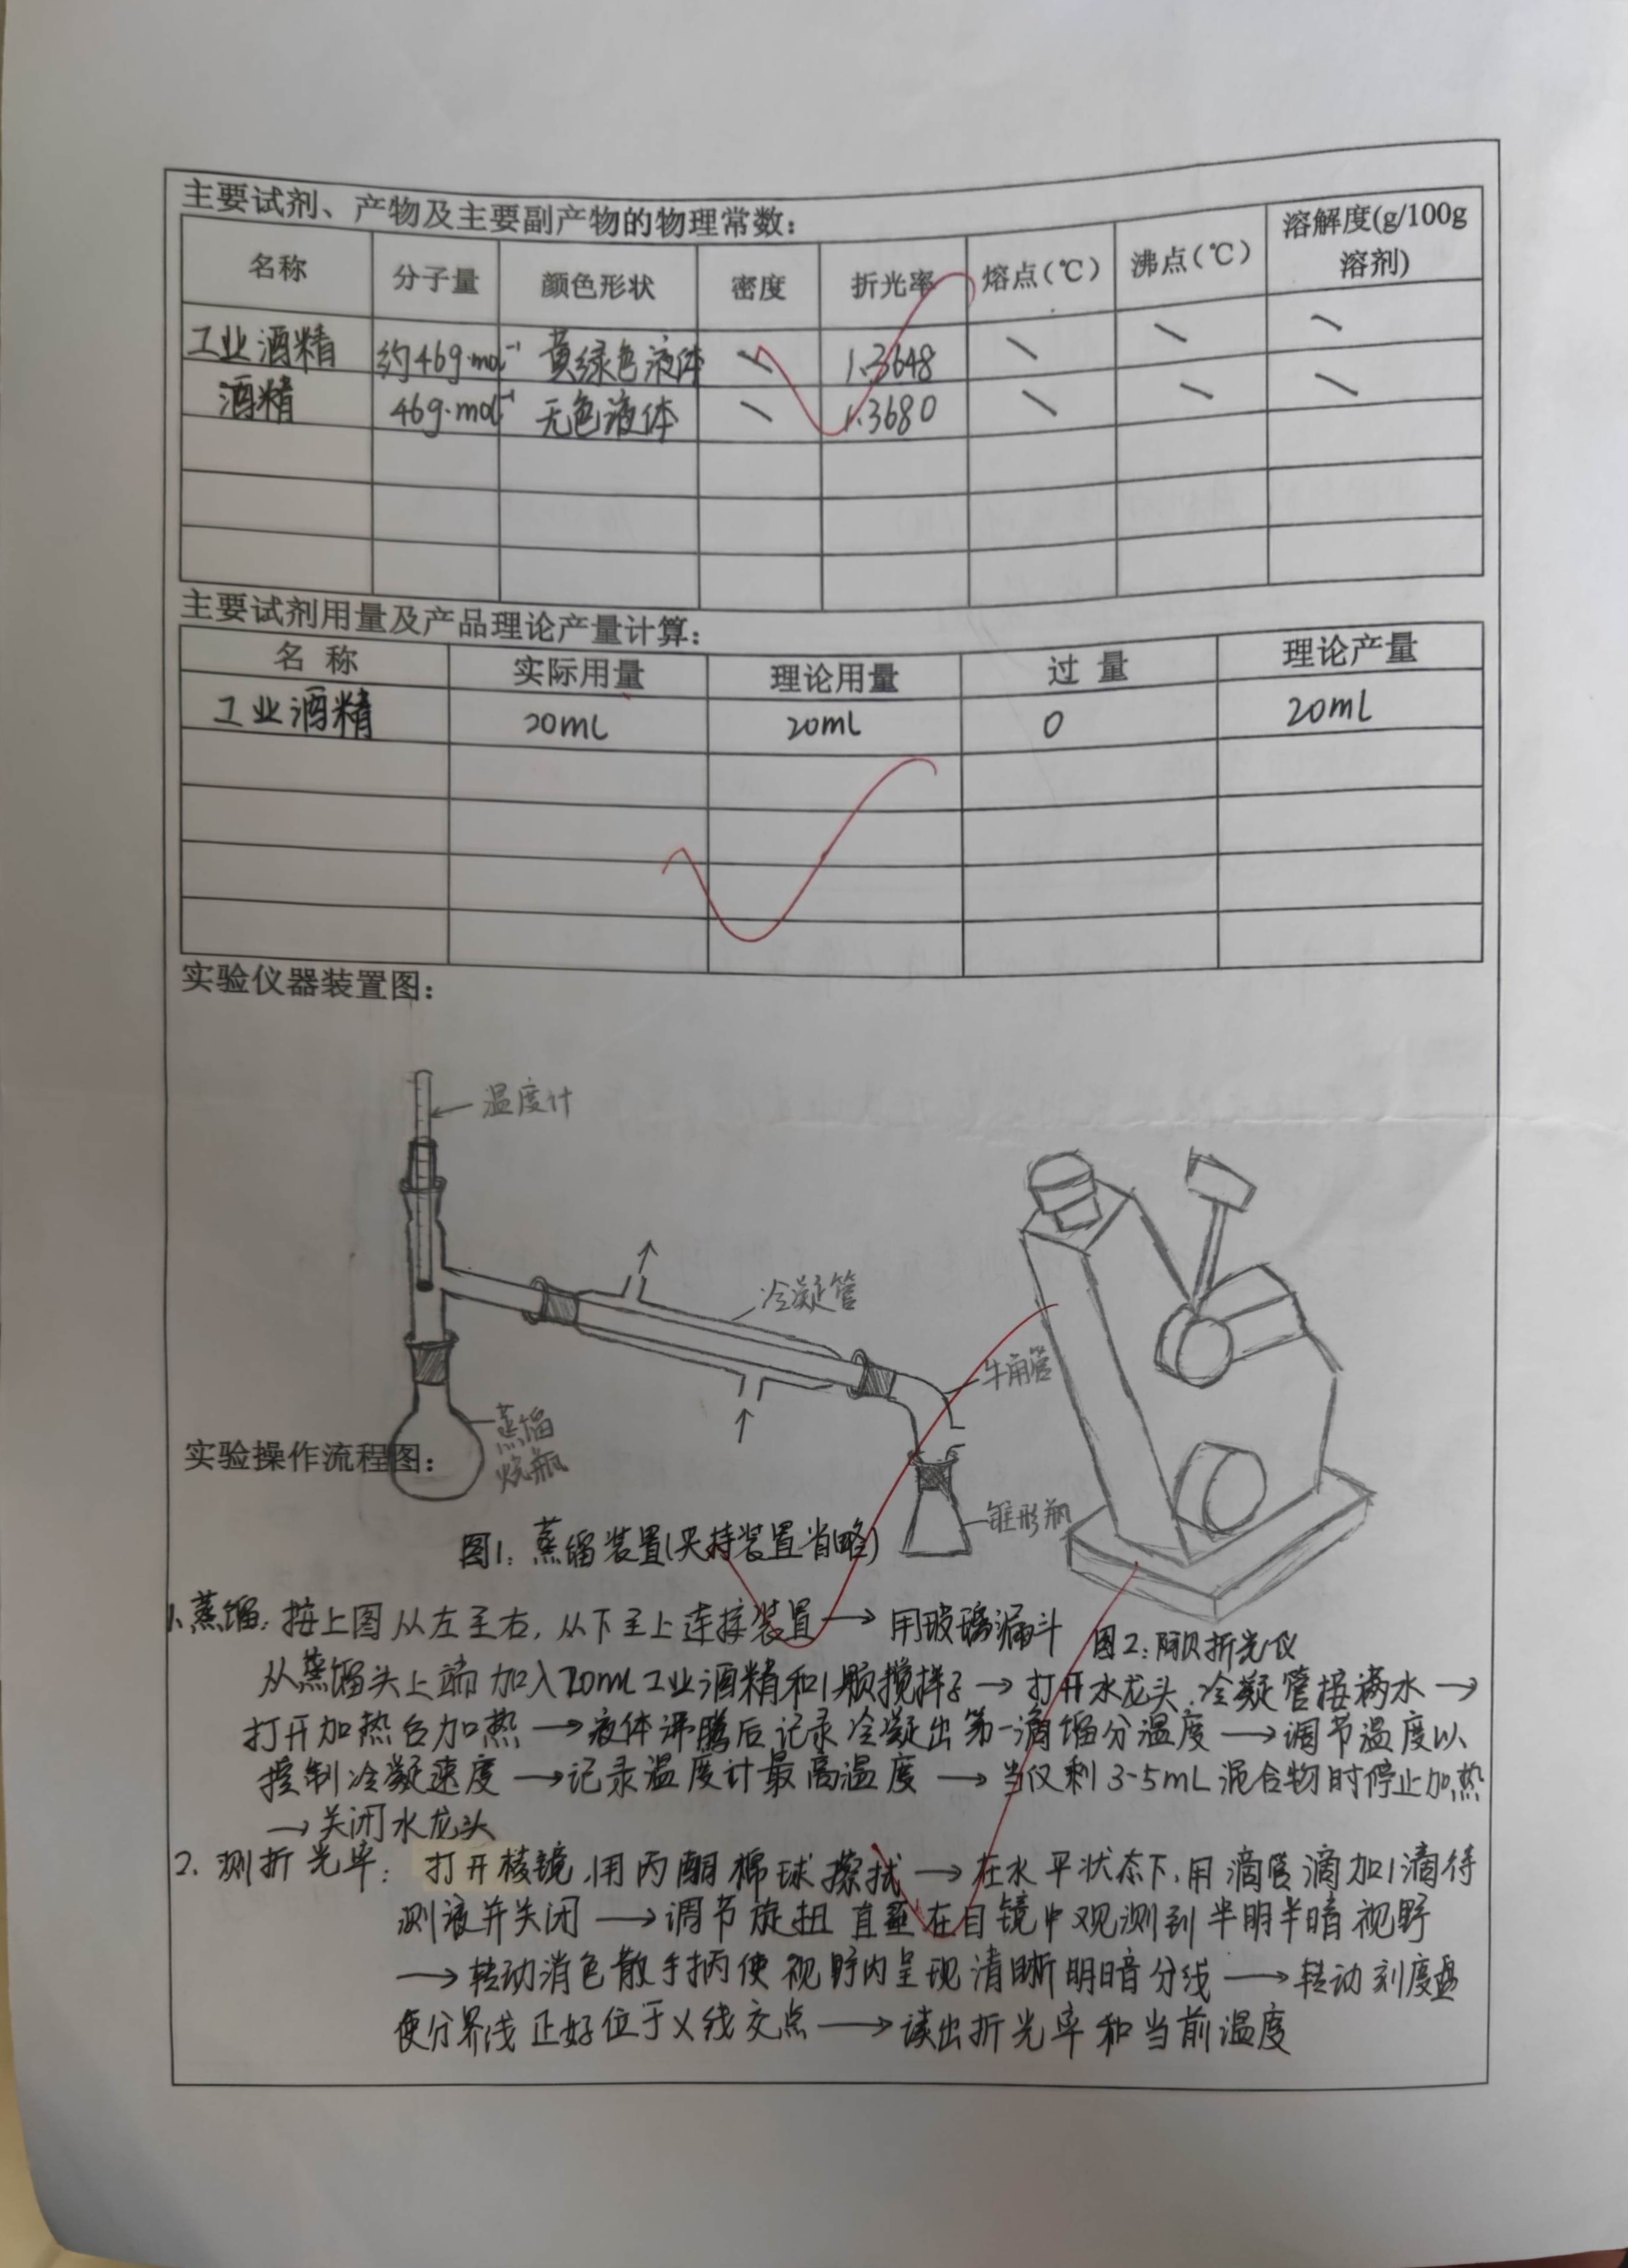 主要试剂、产物及主要副产物的物理常数：
名称 分子量 颜色形状 密度 折光率 熔点(℃) 沸点(℃) 溶解度(g/100g溶剂)
工业酒精 约46g·mol⁻¹ 黄绿色液体 \ 1.3648 \ \ \
酒精 46g·mol⁻¹ 无色液体 \ 1.3680 \ \ \
主要试剂用量及产品理论产量计算：
名 称 实际用量 理论用量 过 量 理论产量
工业酒精 20mL 20mL 0 20mL
实验仪器装置图：
温度计
冷凝管
牛角管
蒸馏
烧瓶
实验操作流程图：
锥形瓶
图1：蒸馏装置(夹持装置省略)
图2：阿贝折光仪
1.蒸馏：按上图从左至右，从下至上连接装置→用玻璃漏斗
从蒸馏头上端加入20mL工业酒精和1颗搅拌子→打开水龙头，冷凝管接满水→
打开加热台加热→液体沸腾后记录冷凝出第一滴馏分温度→调节温度以
控制冷凝速度→记录温度计最高温度→当仅剩3-5mL混合物时停止加热
→关闭水龙头
2. 测折光率：打开棱镜，用丙酮棉球擦拭→在水平状态下，用滴管滴加1滴待
测液并关闭→调节旋扭直至在目镜中观测到半明半暗视野
→转动消色散手柄使视野内呈现清晰明暗分线→转动刻度盘
使分界线正好位于X线交点→读出折光率和当前温度